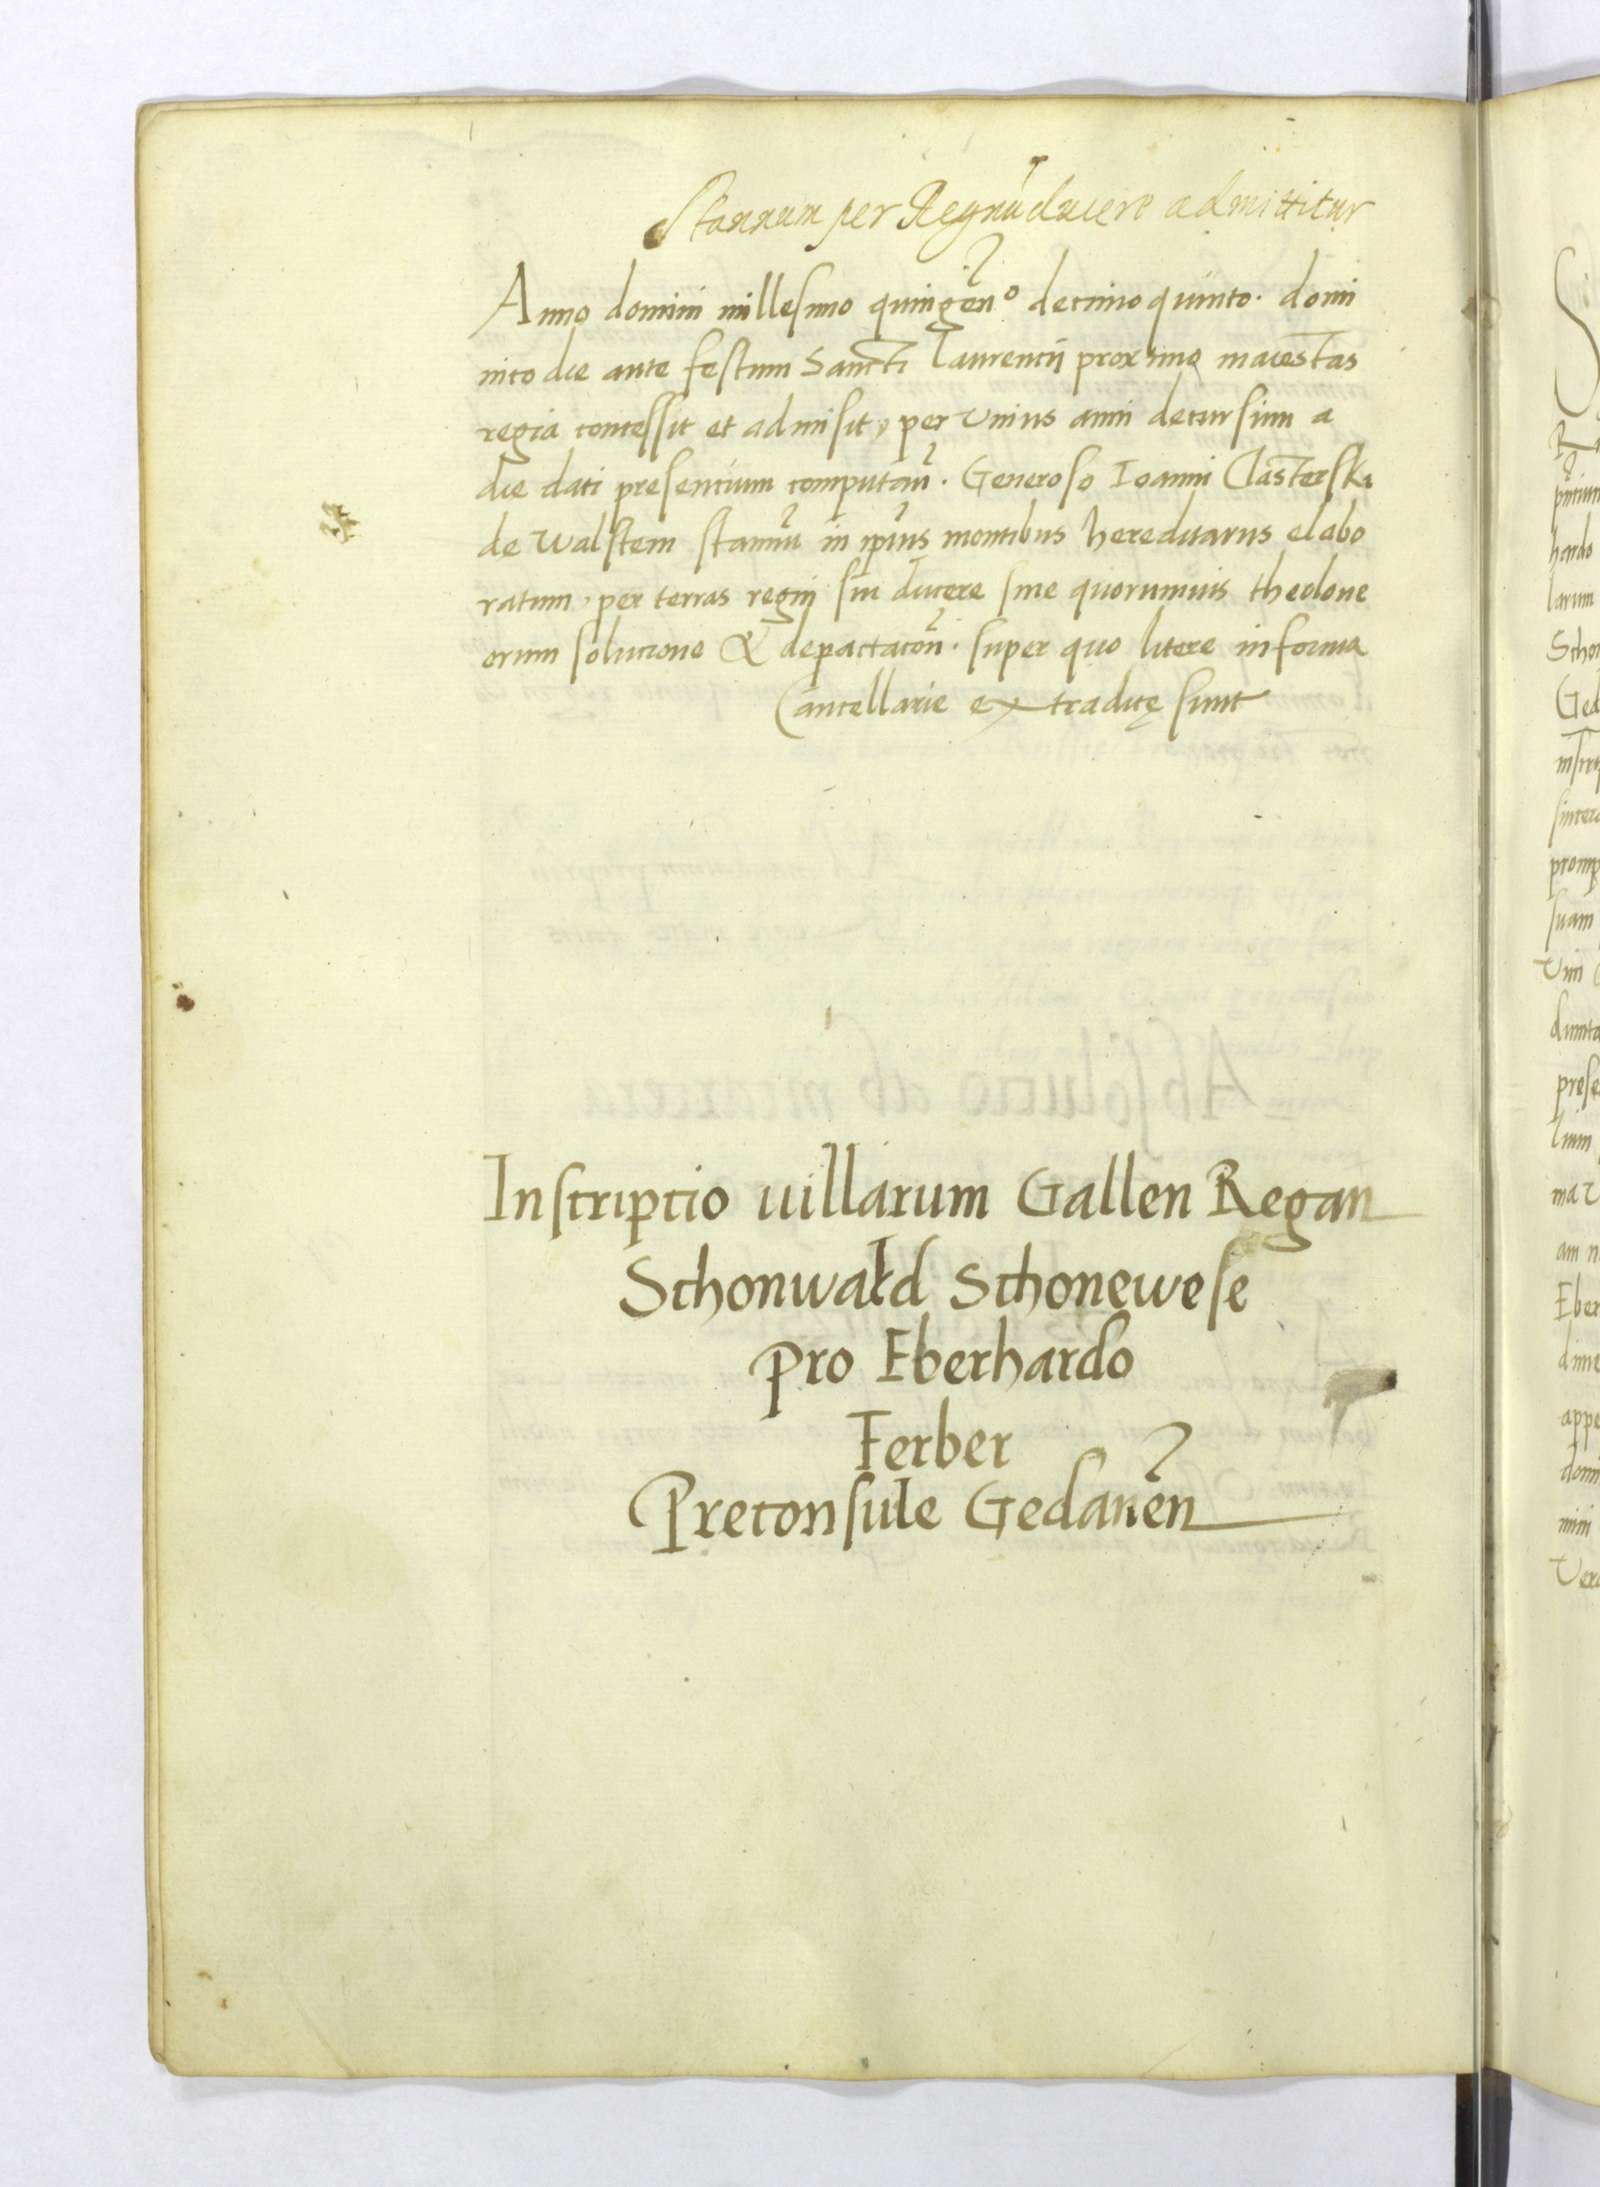 Stannum per Regnū ducere admittitur
Anno domini millesimo quingen̄o decimo quinto. domi
nico die ante festum Sancti Laurencii proxime maiestas
regia concessit et admisit, per unius anni decursum a
die dati presencium computan̄. Generoso Ioanni Clasterski
de Walstein stannū in ip̄ius montibus hereditariis elabo
ratum, per terras regni sui ducere sine quorumuis theolone
orum solucione & depactacōn̄. super quo litere in forma
Cancellarie extraditę sunt
Inscriptio uillarum Gallen Regan
Schonwald Schonewese
pro Eberhardo
Ferber
Preconsule Gedanen̄